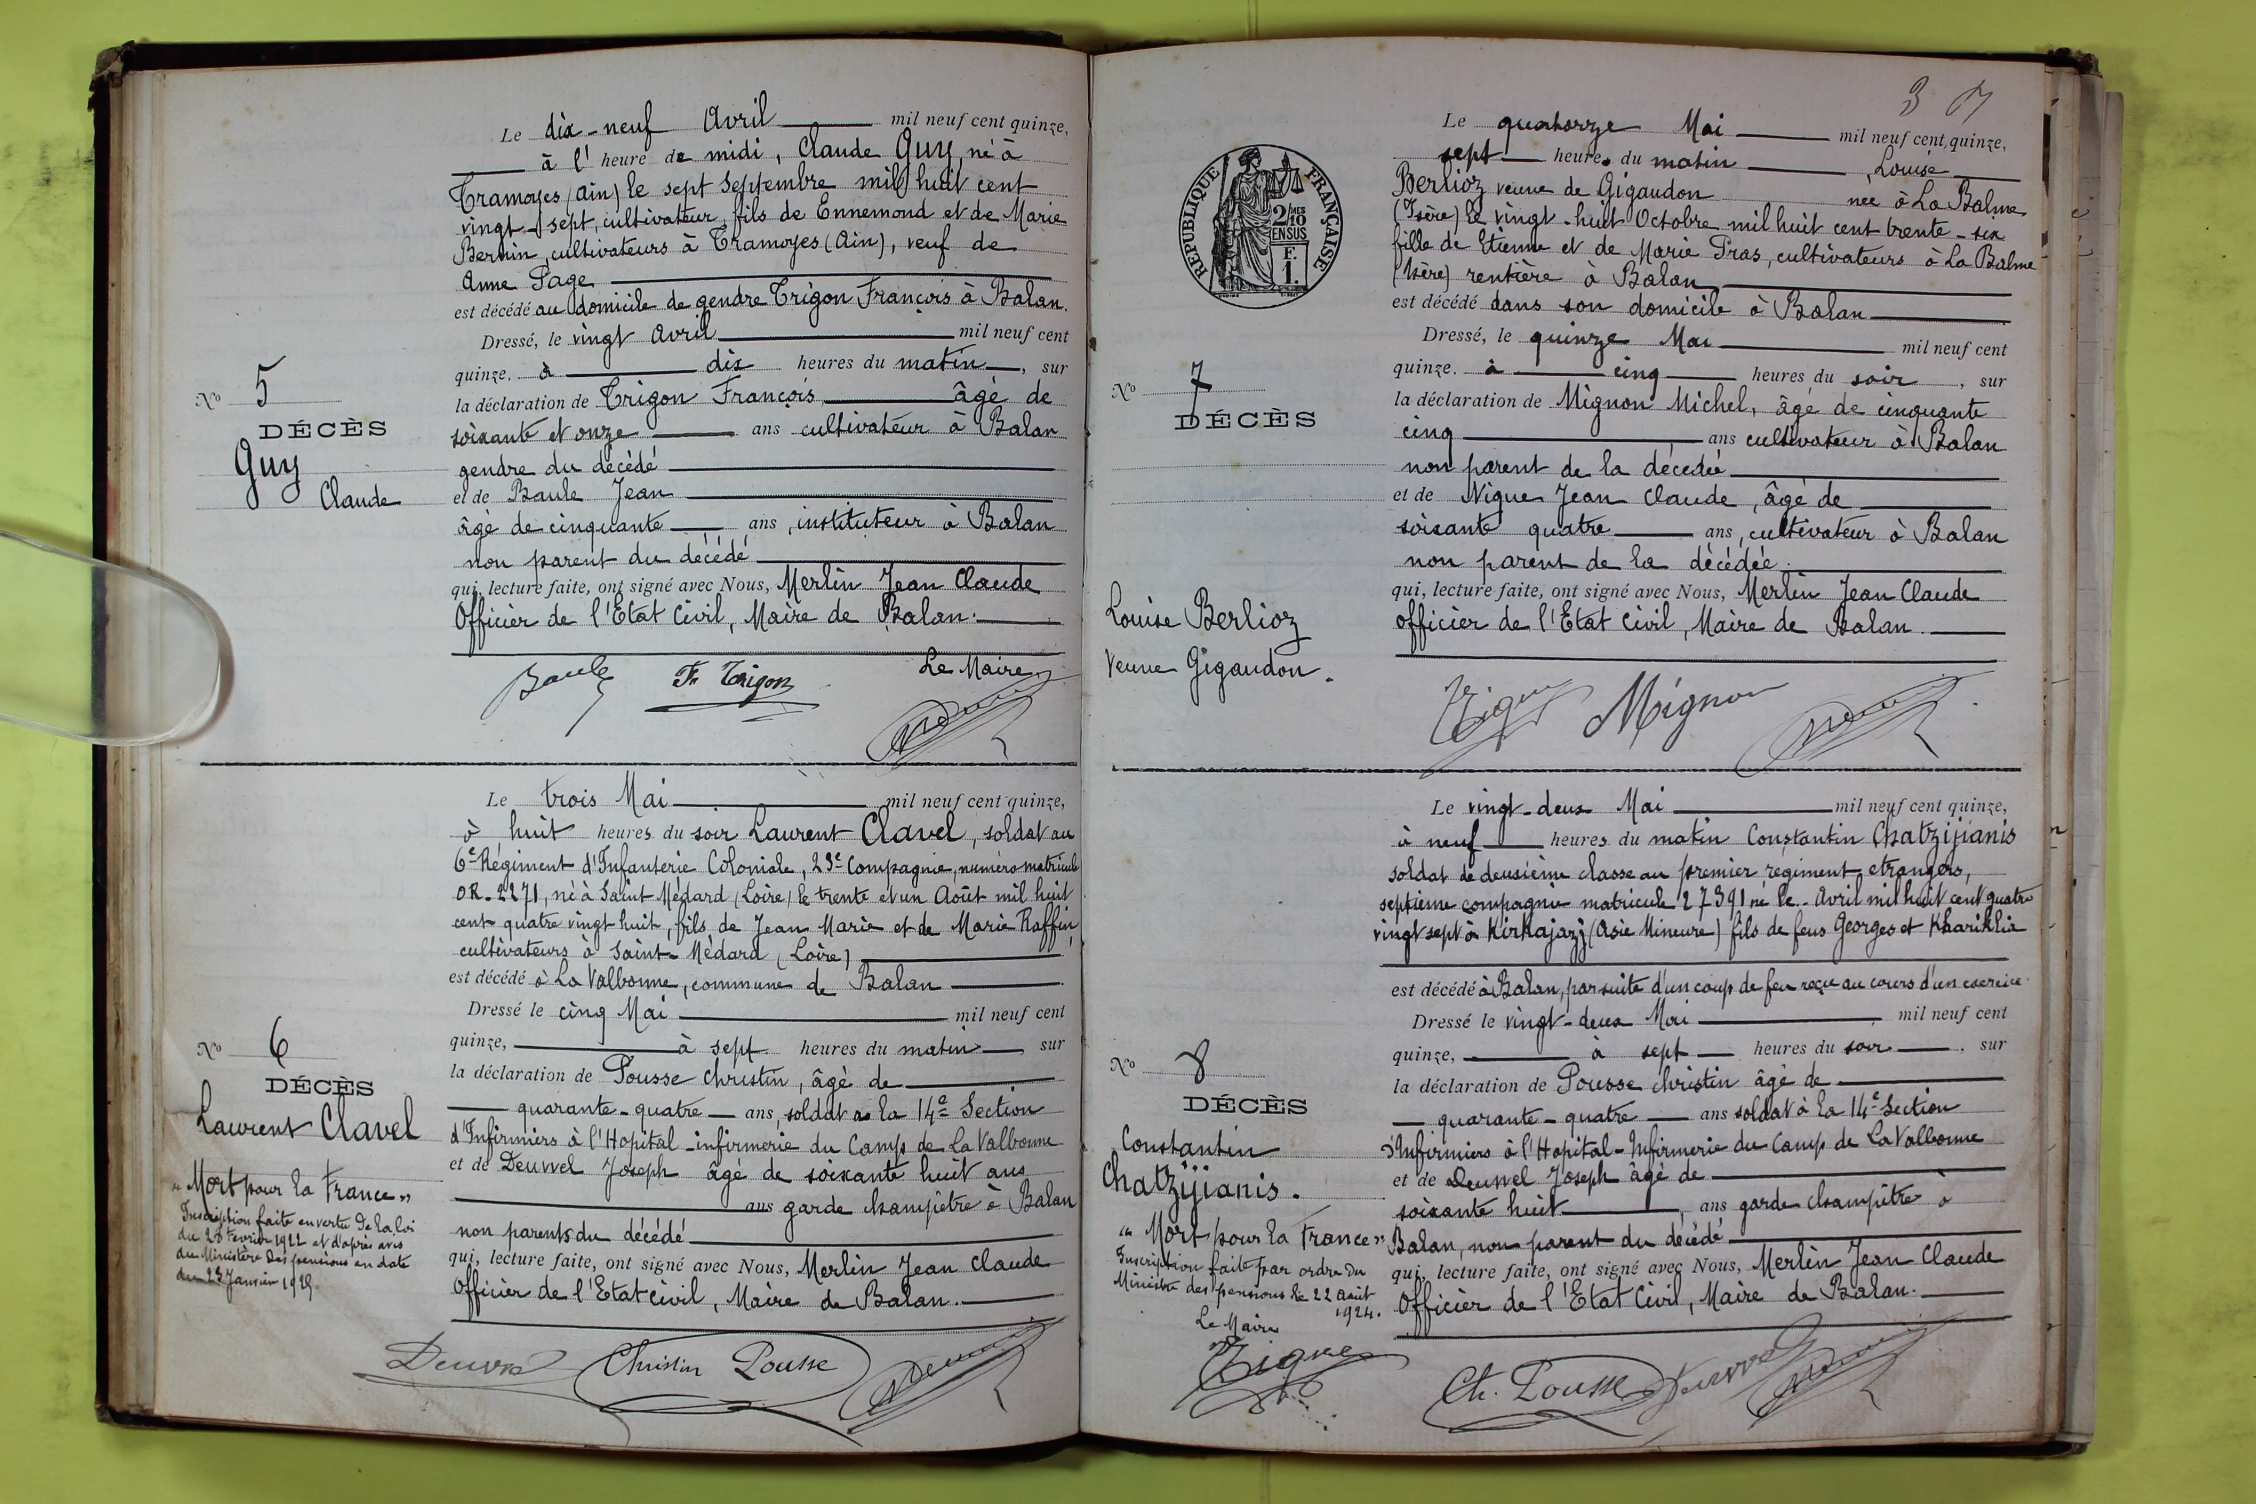 Le dix-neuf Avril mil neuf cent quinze,
à l'heure de midi, Claude Guy, né à
Tramoyes (Ain) le sept Septembre mil huit cent
vingt-sept, cultivateur, fils de Ennemond et de Marie
Bernin, cultivateurs à Tramoyes (Ain), veuf de
Anne Page
est décédé au domicile de gendre Trigon François à Balan.
Dressé, le vingt Avril mil neuf cent
quinze, à dix heures du matin, sur
la déclaration de Trigon François âgé de
soixante et onze ans cultivateur à Balan
gendre du décédé
et de Baule Jean
âgé de cinquante ans, instituteur à Balan
non parent du décédé
qui, lecture faite, ont signé avec Nous, Merlin Jean Claude
Officier de l'Etat Civil, Maire de Balan.
Baule Fr Trigon Le Maire
No 5
DÉCÈS
Guy
Claude
Le trois Mai mil neuf cent quinze,
à huit heures du soir Laurent Clavel, soldat au
6e Régiment d'Infanterie Coloniale, 29e Compagnie, numéro matricule
OR. 2271, né à Saint Médard (Loire) le trente et un Août mil huit
cent quatre vingt huit, fils de Jean Marie et de Marie Raffin,
cultivateurs à Saint-Médard (Loire)
est décédé à La Valbonne, commune de Balan
Dressé le cinq Mai mil neuf cent
quinze, à sept heures du matin, sur
la déclaration de Pousse Christin, âgé de
quarante-quatre ans, soldat à la 14e Section
d'Infirmiers à l'Hopital-infirmerie du Camp de La Valbonne
et de Deuvvel Joseph âgé de soixante huit ans
ans garde champêtre à Balan
non parents du décédé
qui, lecture faite, ont signé avec Nous, Merlin Jean Claude
Officier de l'Etat civil, Maire de Balan.
Christin Pousse
No 6
DÉCÈS
Laurent Clavel
"Mort pour la France"
Inscription faite en vertu de la loi
du 28 Fevrier 1922 et d'après avis
du Ministère des pensions en date
du 23 Janvier
3
RÉPUBLIQUE FRANÇAISE
2/10 MES
EN SUS
F.
1.
Le quatorze Mai mil neuf cent quinze,
sept heures du matin, Louise
Berlioz veuve de Gigaudon née à La Balme
(Isère) le vingt-huit Octobre mil huit cent trente-six
fille de Etienne et de Marie Pras, cultivateurs à La Balme
(Isère) rentière à Balan
est décédé dans son domicile à Balan
Dressé, le quinze Mai mil neuf cent
quinze. à cinq heures du soir, sur
la déclaration de Mignon Michel, âgé de cinquante
cinq ans cultivateur à Balan
non parent de la décedée
et de Nigue Jean Claude, âgé de
soixante quatre ans, cultivateur à Balan
non parent de la décédée.
qui, lecture faite, ont signé avec Nous, Merlin Jean Claude
Officier de l'Etat Civil, Maire de Balan.
Mignon
No 7
DÉCÈS
Louise Berlioz
Veuve Gigaudon.
Le vingt-deux Mai mil neuf cent quinze,
à neuf heures du matin Constantin Chatzijianis
soldat de deuxième classe au premier régiment etrangers,
septième compagnie matricule 27391 né le .. Avril mil huit cent quatre
vingt sept à Kirkajazj (Asie Mineure) fils de feus Georges et Kharikhia
est décédé à Balan, par suite d'un coup de feu reçu au cours d'un exercice
Dressé le vingt-deux Mai mil neuf cent
quinze, à sept heures du soir, sur
la déclaration de Pousse Christin âgé de
quarante-quatre ans soldat à la 14e Section
d'Infirmiers à l'Hopital-Infirmerie du Camp de La Valbonne
et de Deuvvel Joseph âgé de
soixante huit, ans garde champêtre à
Balan, non parent du décédé
qui, lecture faite, ont signé avec Nous, Merlin Jean Claude
Officier de l'Etat Civil, Maire de Balan.
Ch. Pousse
No 8
DÉCÈS
Constantin
Chatzijianis.
"Mort pour la France"
Inscription faite par ordre du
Ministre des pensions le 22 Août
1924.
Le Maire